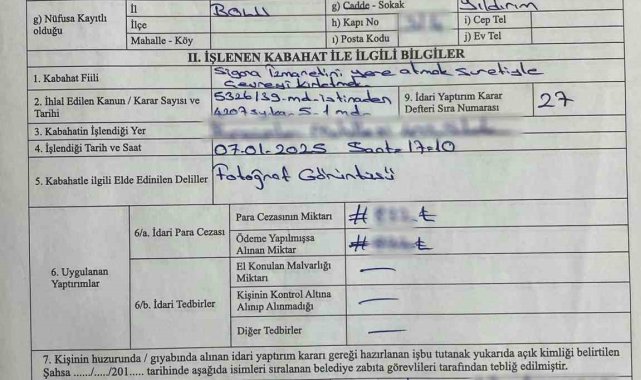 g) Nüfusa Kayıtlı olduğu
İl BOLU g) Cadde - Sokak Yıldırım
İlçe h) Kapı No i) Cep Tel
Mahalle - Köy ı) Posta Kodu j) Ev Tel
II. İŞLENEN KABAHAT İLE İLGİLİ BİLGİLER
1. Kabahat Fiili Sigara İzmaretini yere atmak suretiyle
Çevreyi kirletmek
2. İhlal Edilen Kanun / Karar Sayısı ve
Tarihi
5326/39.md.istinaden
4207 syl. 5.1 md.
9. İdari Yaptırım Karar
Defteri Sıra Numarası
27
3. Kabahatin İşlendiği Yer
4. İşlendiği Tarih ve Saat 07.01.2025 Saat:17:10
5. Kabahatle ilgili Elde Edinilen Deliller Fotoğraf Görüntüsü
6. Uygulanan
Yaptırımlar
6/a. İdari Para Cezası
Para Cezasının Miktarı # ₺
Ödeme Yapılmışsa
Alınan Miktar
# ₺
6/b. İdari Tedbirler
El Konulan Malvarlığı
Miktarı
—
Kişinin Kontrol Altına
Alınıp Alınmadığı
—
Diğer Tedbirler —
7. Kişinin huzurunda / gıyabında alınan idari yaptırım kararı gereği hazırlanan işbu tutanak yukarıda açık kimliği belirtilen
Şahsa ....../...../201..... tarihinde aşağıda isimleri sıralanan belediye zabıta görevlileri tarafından tebliğ edilmiştir.